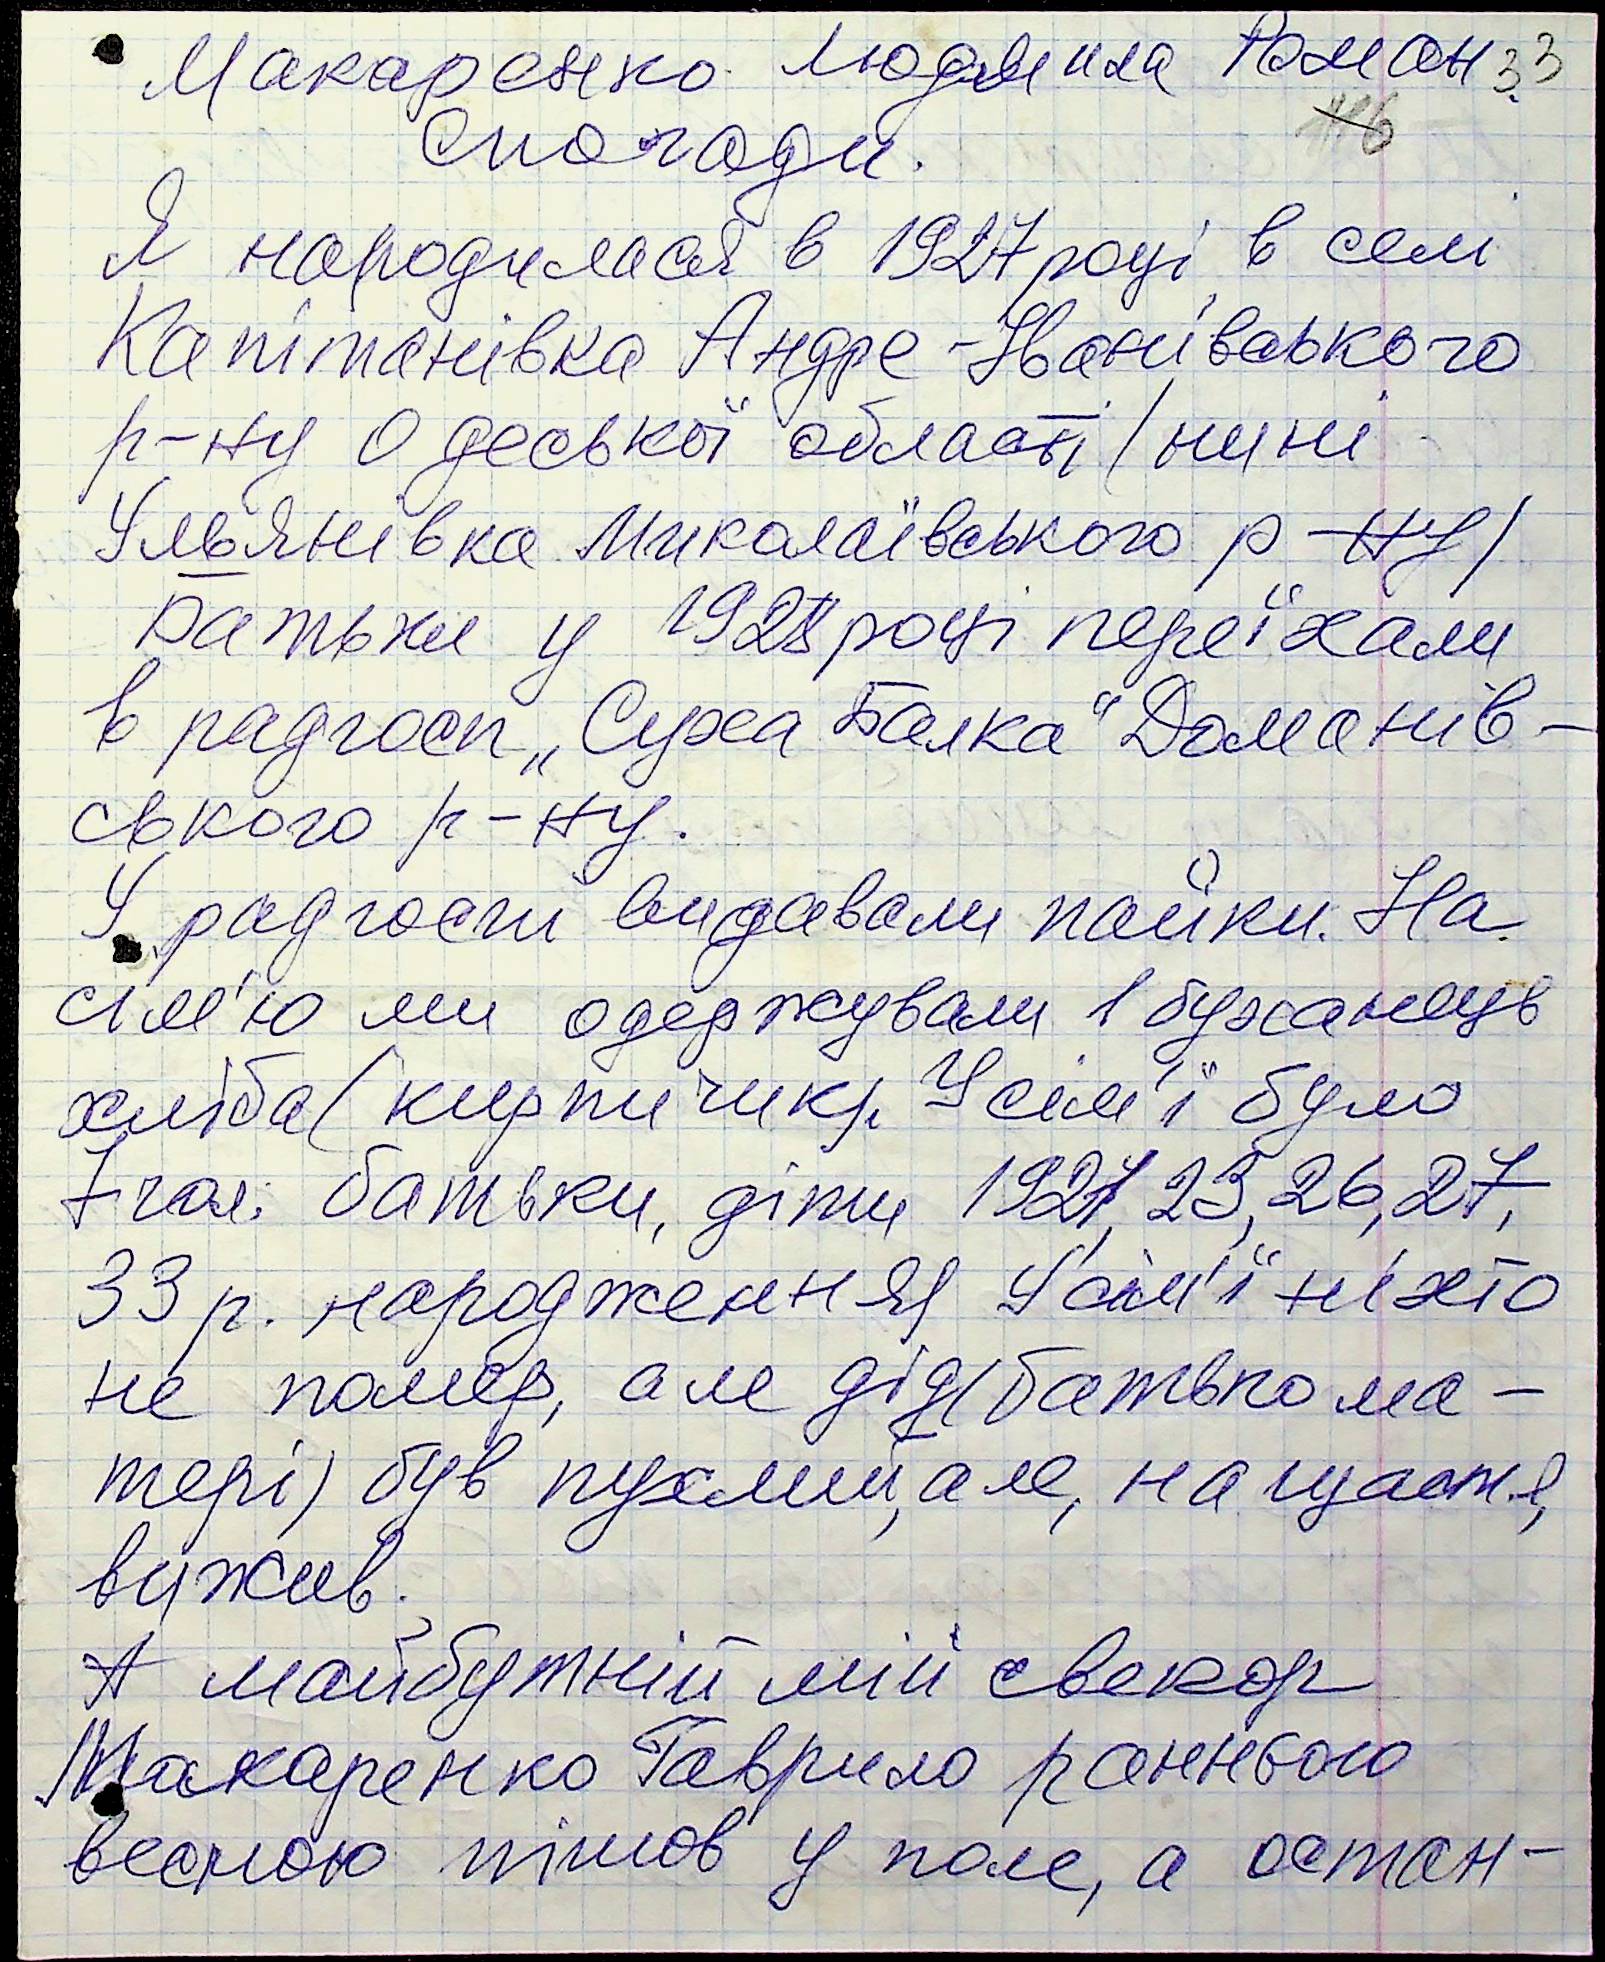 Макаренко Людмила Роман 33
Спогади.
Я народилася в 1927 році в селі
Капітанівка Андре-Іванівського
р-ну Одеської області /нині
Ульянівка Миколаївського р-ну/
Батьки у 1928 році переїхали
в радгосп „Суха Балка" Доманів-
ського р-ну.
У радгоспі видавали пайки. На
сім'ю ми одержували 1 буханець
хліба (кирпичик). У сім'ї було
7 чол: батьки, діти 1921, 23, 26, 27,
33 р. народження У сім'ї ніхто
не помер, але дід (батько ма-
тері) був пухлий, але, на щастя,
вижив.
А майбутній мій свекор
Макаренко Гаврило ранньою
весною пішов у поле, а остан-